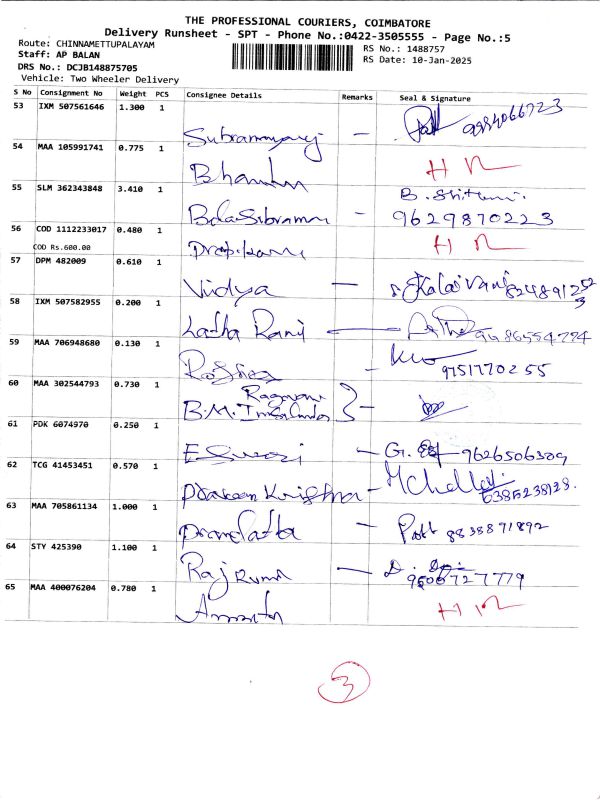 THE PROFESSIONAL COURIERS, COIMBATORE
Delivery Runsheet - SPT - Phone No.:0422-3505555 - Page No.:5
Route: CHINNAMETTUPALAYAM RS No.: 1488757
Staff: AP BALAN RS Date: 10-Jan-2025
DRS No.: DCJB148875705
Vehicle: Two Wheeler Delivery
S No Consignment No Weight PCS Consignee Details Remarks Seal & Signature
53 IXM 507561646 1.300 1
54 MAA 105991741 0.775 1 H N
55 SLM 362343848 3.410 1 9629870223
56 COD 1112233017 0.480 1 H N
COD Rs.600.00
57 DPM 482009 0.610 1 Vidya Kalaivani
58 IXM 507582955 0.200 1 Latha Rani
59 MAA 706948680 0.130 1 9751770255
60 MAA 302544793 0.730 1 B.M.
61 PDK 6074970 0.250 1 Eswari G. 9626506309
62 TCG 41453451 0.570 1 Krishna
63 MAA 705861134 1.000 1 8838871892
64 STY 425390 1.100 1 Raj Kumar
65 MAA 400076204 0.780 1 H N
3